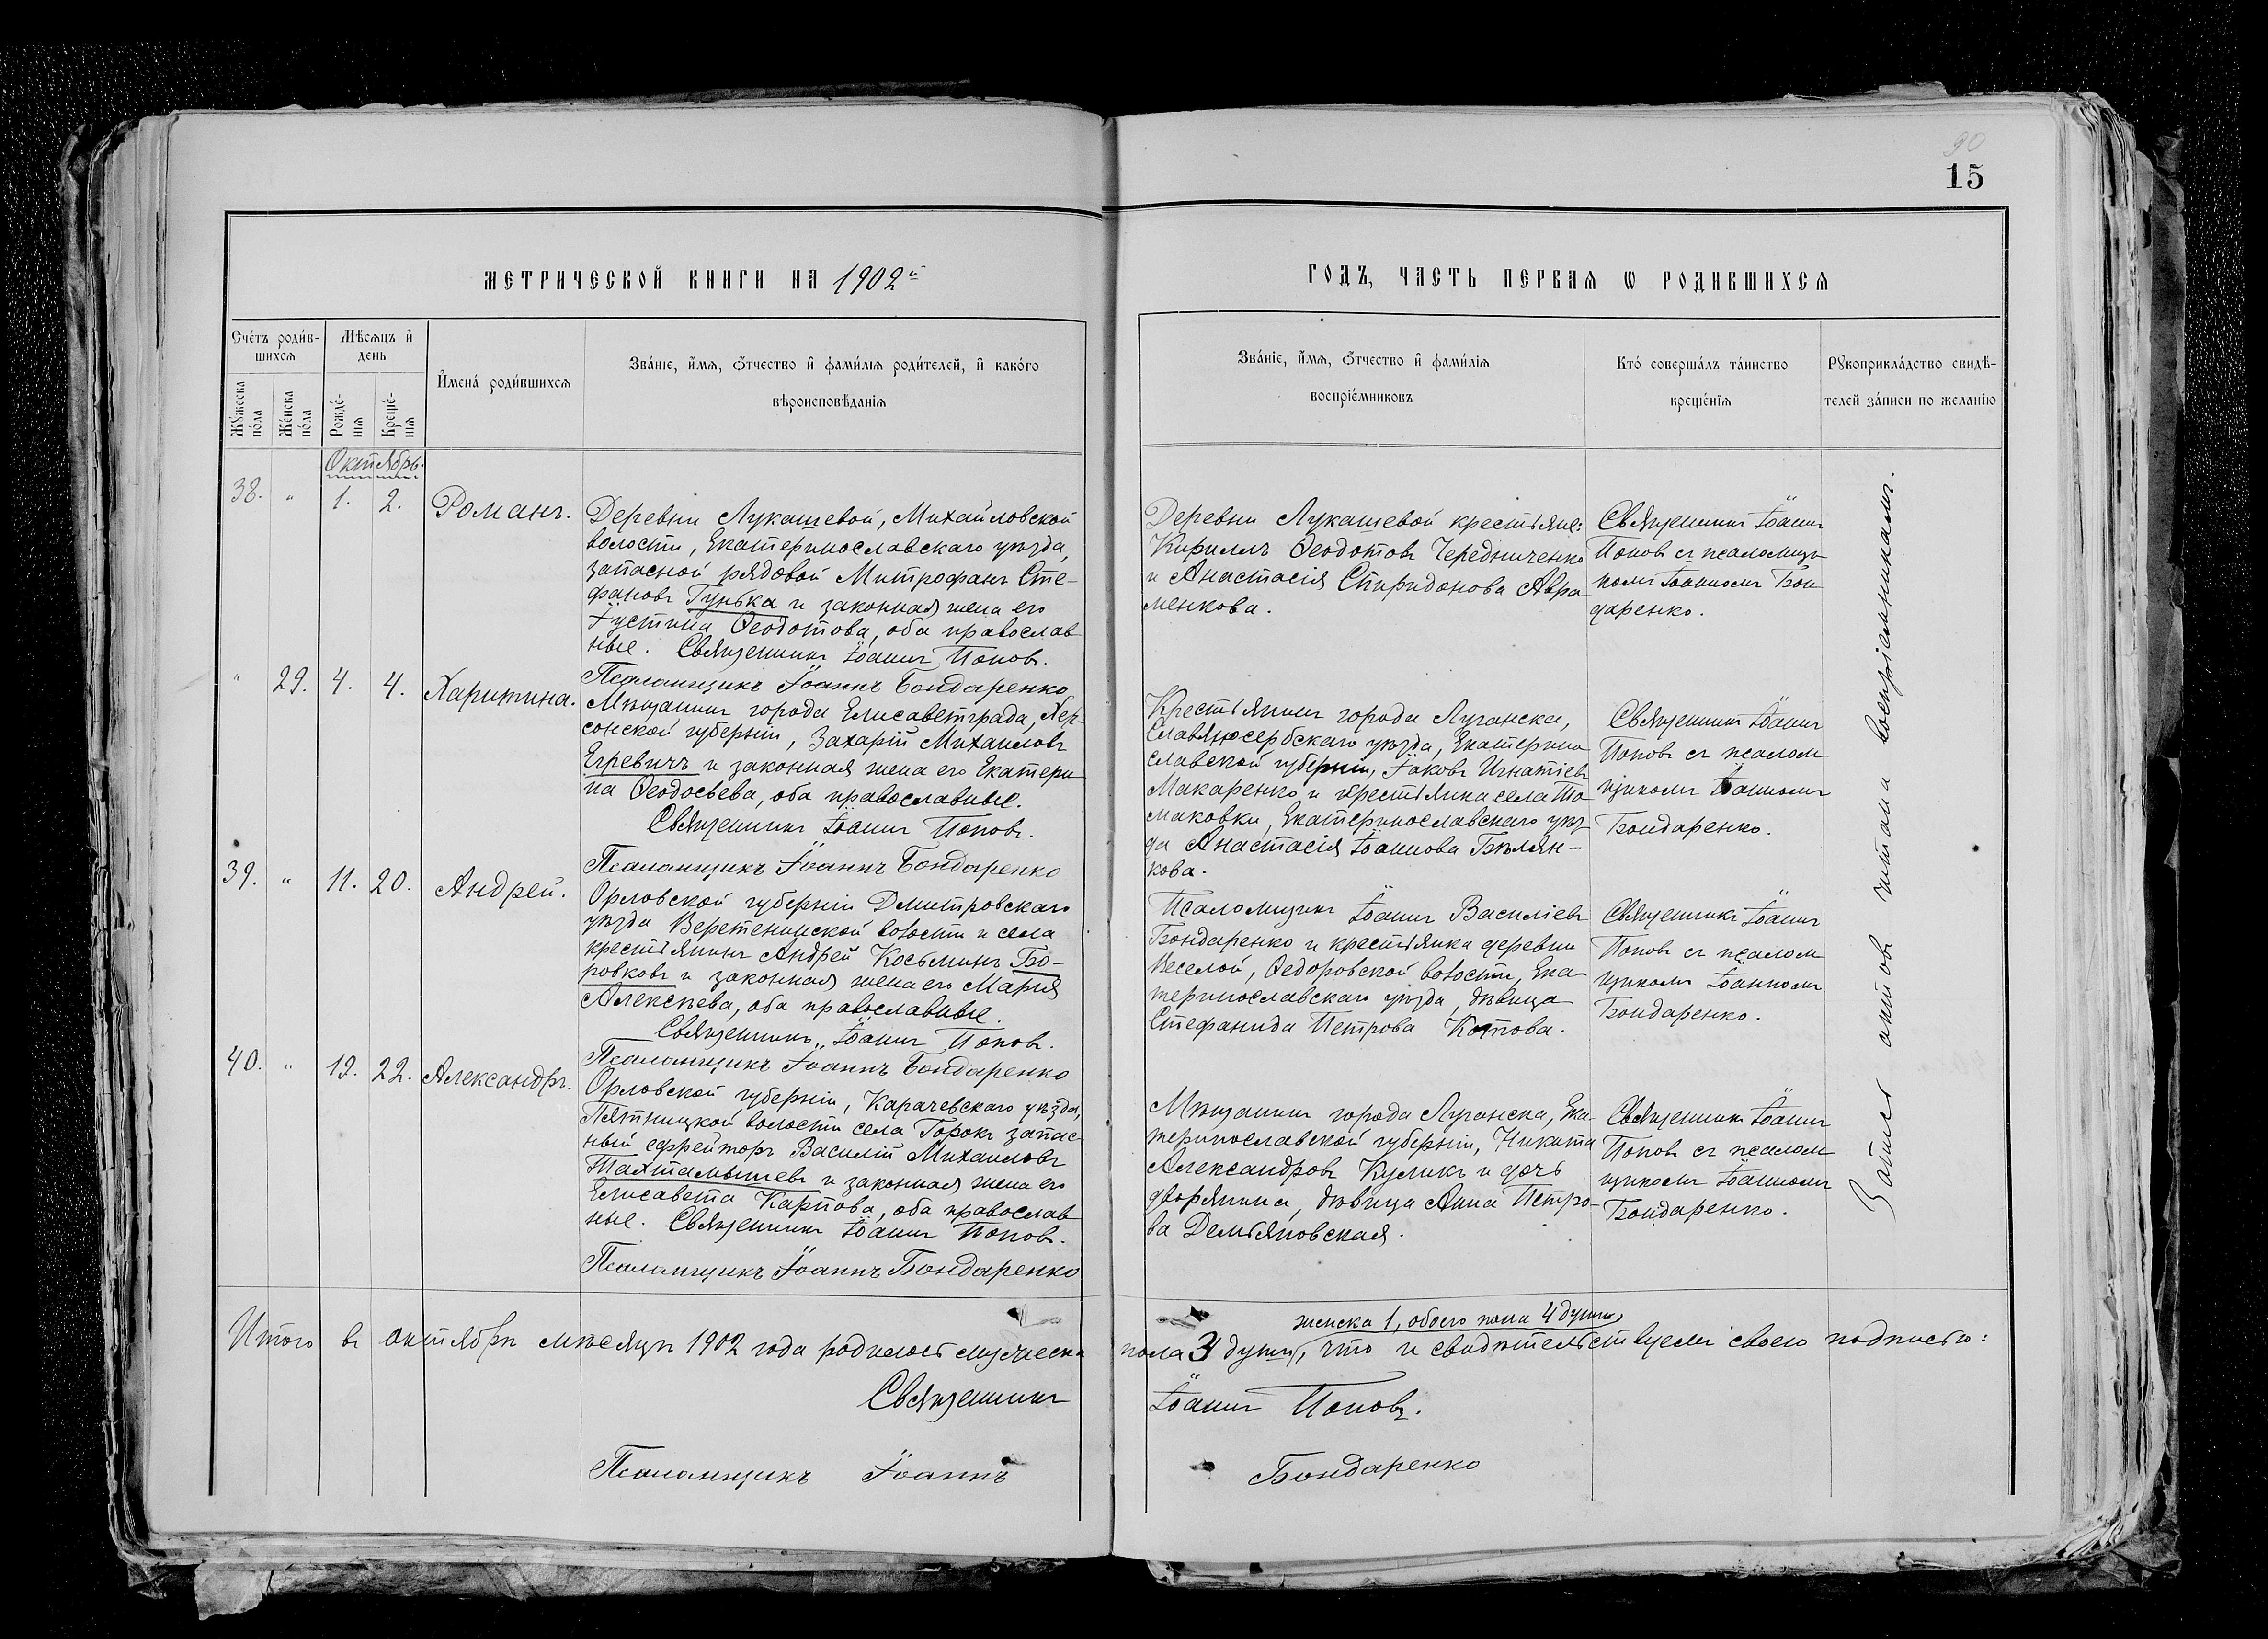 90
15
МЕТРИЧЕСКОЙ КНИГИ НА 1902й
ГОДЪ, ЧАСТЬ ПЕРВАЯ Ѡ РОДИВШИХСЯ
Счетъ родив-
шихся
Мѣсяцъ и
день
Мужеска
пола
Женска
пола
Рожде-
нія
Креще-
нія
Имена родившихся
Званіе, имя, отчество и фамилія родителей, и какого
вѣроисповѣданія
Званіе, имя, отчество и фамилія
воспріемниковъ
Кто совершалъ таинство
крещенія
Рукоприкладство свидѣ-
телей записи по желанію
Октябрь.
38. " 1. 2. Романъ.
Деревни Лукашевой, Михайловской
волости, Екатеринославскаго уѣзда,
запасной рядовой Митрофанъ Сте-
фановъ Гунька и законная жена его
Іустина Ѳеодотова, оба православ
ные. Священникъ Іоаннъ Поповъ.
Псаломщикъ Іоаннъ Бондаренко
Деревни Лукашевой крестьяне:
Кириллъ Ѳеодотовъ Чередниченко
и Анастасія Спиридонова Авра
менкова.
Священникъ Іоаннъ
Поповъ съ псаломщи-
комъ Іоанномъ Бон
даренко.
" 29. 4. 4. Харитина.
Мѣщанинъ города Елисаветграда, Хер-
сонской губерніи, Захарій Михаиловъ
Егревичъ и законная жена его Екатери
на Ѳеодосьева, оба православные.
Священникъ Іоаннъ Поповъ.
Псаломщикъ Іоаннъ Бондаренко
Крестьянинъ города Луганска,
Славяносербскаго уѣзда, Екатерино
славской губерніи, Іаковъ Игнатіевъ
Макаренко и крестьянка села То
маковки, Екатеринославскаго уѣз
да Анастасія Іоаннова Бѣлян-
кова.
Священникъ Іоаннъ
Поповъ съ псалом
щикомъ Іоанномъ
Бондаренко.
39. " 11. 20. Андрей.
Орловской губерніи Дмитровскаго
уѣзда Веретенинской волости и села
крестьянинъ Андрей Косьминъ Бо-
ровковъ и законная жена его Марія
Алексѣева, оба православные.
Священникъ Іоаннъ Поповъ.
Псаломщикъ Іоаннъ Бондаренко
Псаломщикъ Іоаннъ Василіевъ
Бондаренко и крестьянка деревни
Веселой, Ѳедоровской волости, Ека-
теринославскаго уѣзда, дѣвица
Стефанида Петрова Котова.
Священникъ Іоаннъ
Поповъ съ псалом
щикомъ Іоанномъ
Бондаренко.
40. " 19. 22. Александръ.
Орловской губерніи, Карачевскаго уѣзда,
Пятницкой волости села Горокъ запас
ный ефрейторъ Василій Михаиловъ
Тахтамышевъ и законная жена его
Елисавета Карпова, оба православ
ные. Священникъ Іоаннъ Поповъ.
Псаломщикъ Іоаннъ Бондаренко
Мѣщанинъ города Луганска, Ека-
теринославской губерніи, Никита
Александровъ Куликъ и дочь
дворянина, дѣвица Анна Петро-
ва Демьяновская.
Священникъ Іоаннъ
Поповъ съ псалом
щикомъ Іоанномъ
Бондаренко.
Запись актовъ читана воспріемникамъ.
женска 1, обоего пола 4 души,
Итого въ октябрѣ мѣсяцѣ 1902 года родилось мужеска пола 3 души, что и свидѣтельствуемъ своею подписью:
Священникъ Іоаннъ Поповъ.
Псаломщикъ Іоаннъ Бондаренко